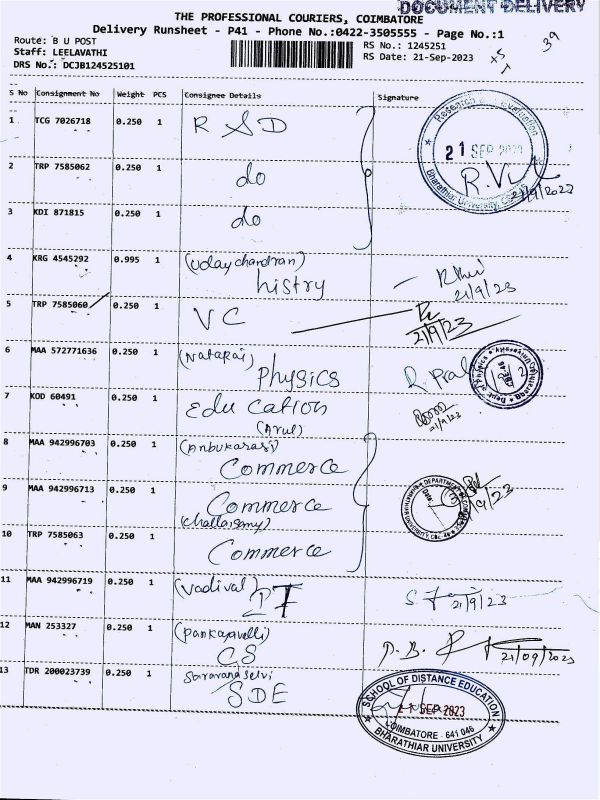 DOCUMENT DELIVERY
THE PROFESSIONAL COURIERS, COIMBATORE
Delivery Runsheet - P41 - Phone No.:0422-3505555 - Page No.:1
Route: B U POST
RS No.: 1245251
39
Staff: LEELAVATHI
RS Date: 21-Sep-2023
DRS No.: DCJB124525101
S No Consignment No Weight PCS Consignee Details Signature
1 TCG 7026718 0.250 1 RSD
Research
21 SEP 2023
R.V
21/9/2023
Bharathiar University,
2 TRP 7585062 0.250 1 do
3 KDI 871815 0.250 1 do
4 KRG 4545292 0.995 1 (Udaychandran)
histry
21/9/23
5 TRP 7585060 0.250 1 VC
21/9/23
6 MAA 572771636 0.250 1 (Nataraj)
Physics
7 KOD 60491 0.250 1 Education
(Arul)
21/9/23
8 MAA 942996703 0.250 1 (Anbukarasi)
Commerce
9 MAA 942996713 0.250 1 Commerce
(Challaisamy)
10 TRP 7585063 0.250 1 Commerce
11 MAA 942996719 0.250 1 (Vadival)
IT
21/9/23
12 MAN 253327 0.250 1 (Pankajavalli)
CS
21/09/2023
13 TDR 200023739 0.250 1 Saravana Selvi
SDE
SCHOOL OF DISTANCE EDUCATION
21 SEP 2023
COIMBATORE - 641 046
BHARATHIAR UNIVERSITY